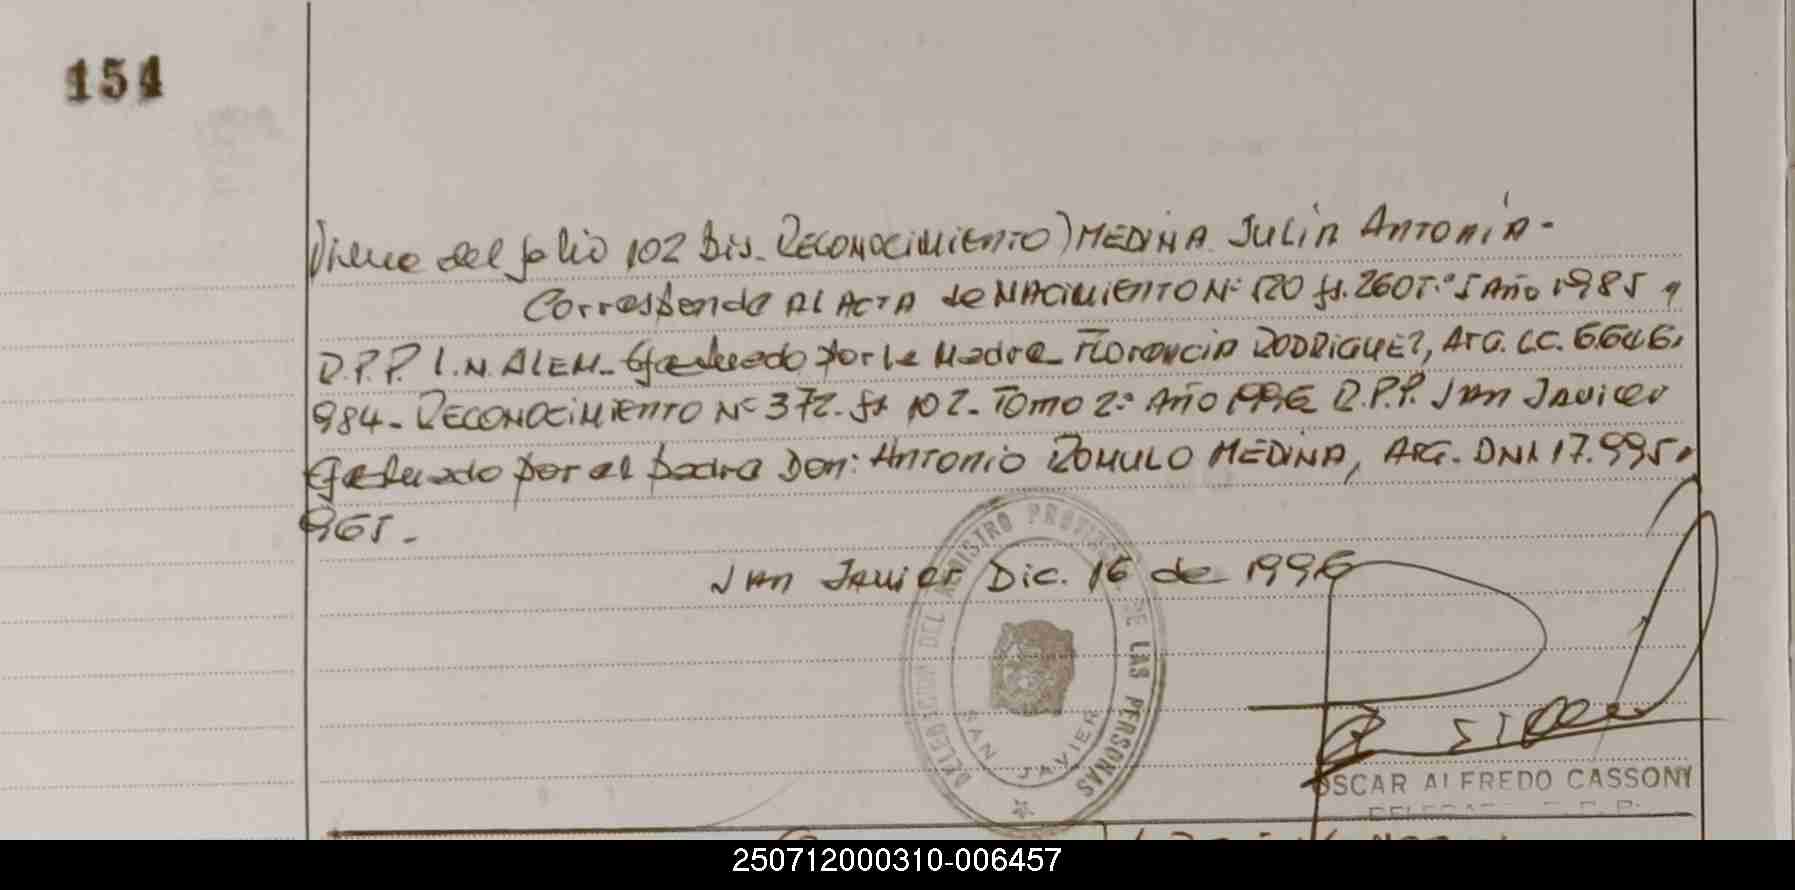 154
Viene del folio 102 Bis. RECONOCIMIENTO) MEDINA JULIA ANTONIA-
Corresponde AL ACTA de NACIMIENTO Nº 520 fs. 260 T.º 5 Año 1985,
D.P.P. L.N. ALEM- Efectuado por la Madre FLORENCIA RODRIGUEZ, ARG. LC. 6.646.
984- RECONOCIMIENTO Nº 372. fs 102- TOMO 2º AÑO 1996 D.P.P. SAN JAVIER
Efectuado por el padre Don: ANTONIO ROMULO MEDINA, ARG. DNI 17.995.
965.-
SAN JAVIER Dic. 16 de 1996
DELEGACION DEL REGISTRO PROVINCIAL DE LAS PERSONAS
SAN JAVIER
OSCAR ALFREDO CASSONY
250712000310-006457